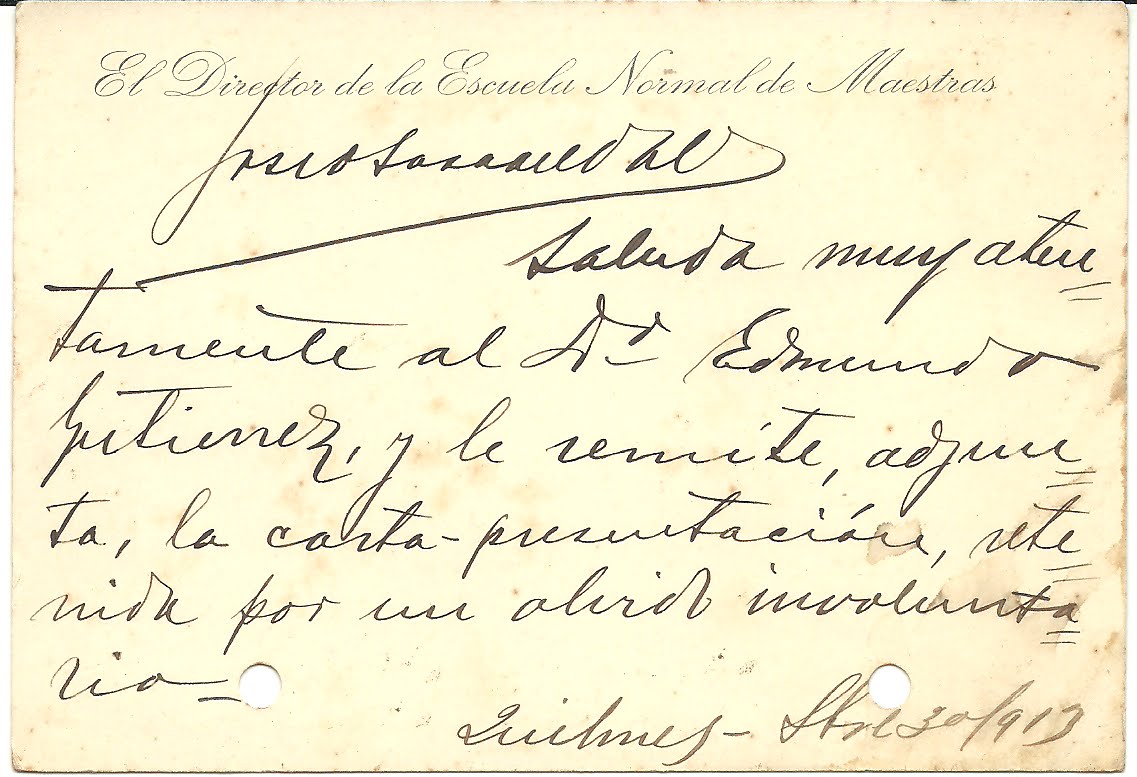 El Director de la Escuela Normal de Maestras
José
saluda muy aten=
tamente al Dr. Edmundo
Gutierrez, y le remite, adjun=
ta, la carta-presentación, rete=
nida por un olvido involunta=
rio—
Quilmes - Sbre 30/913